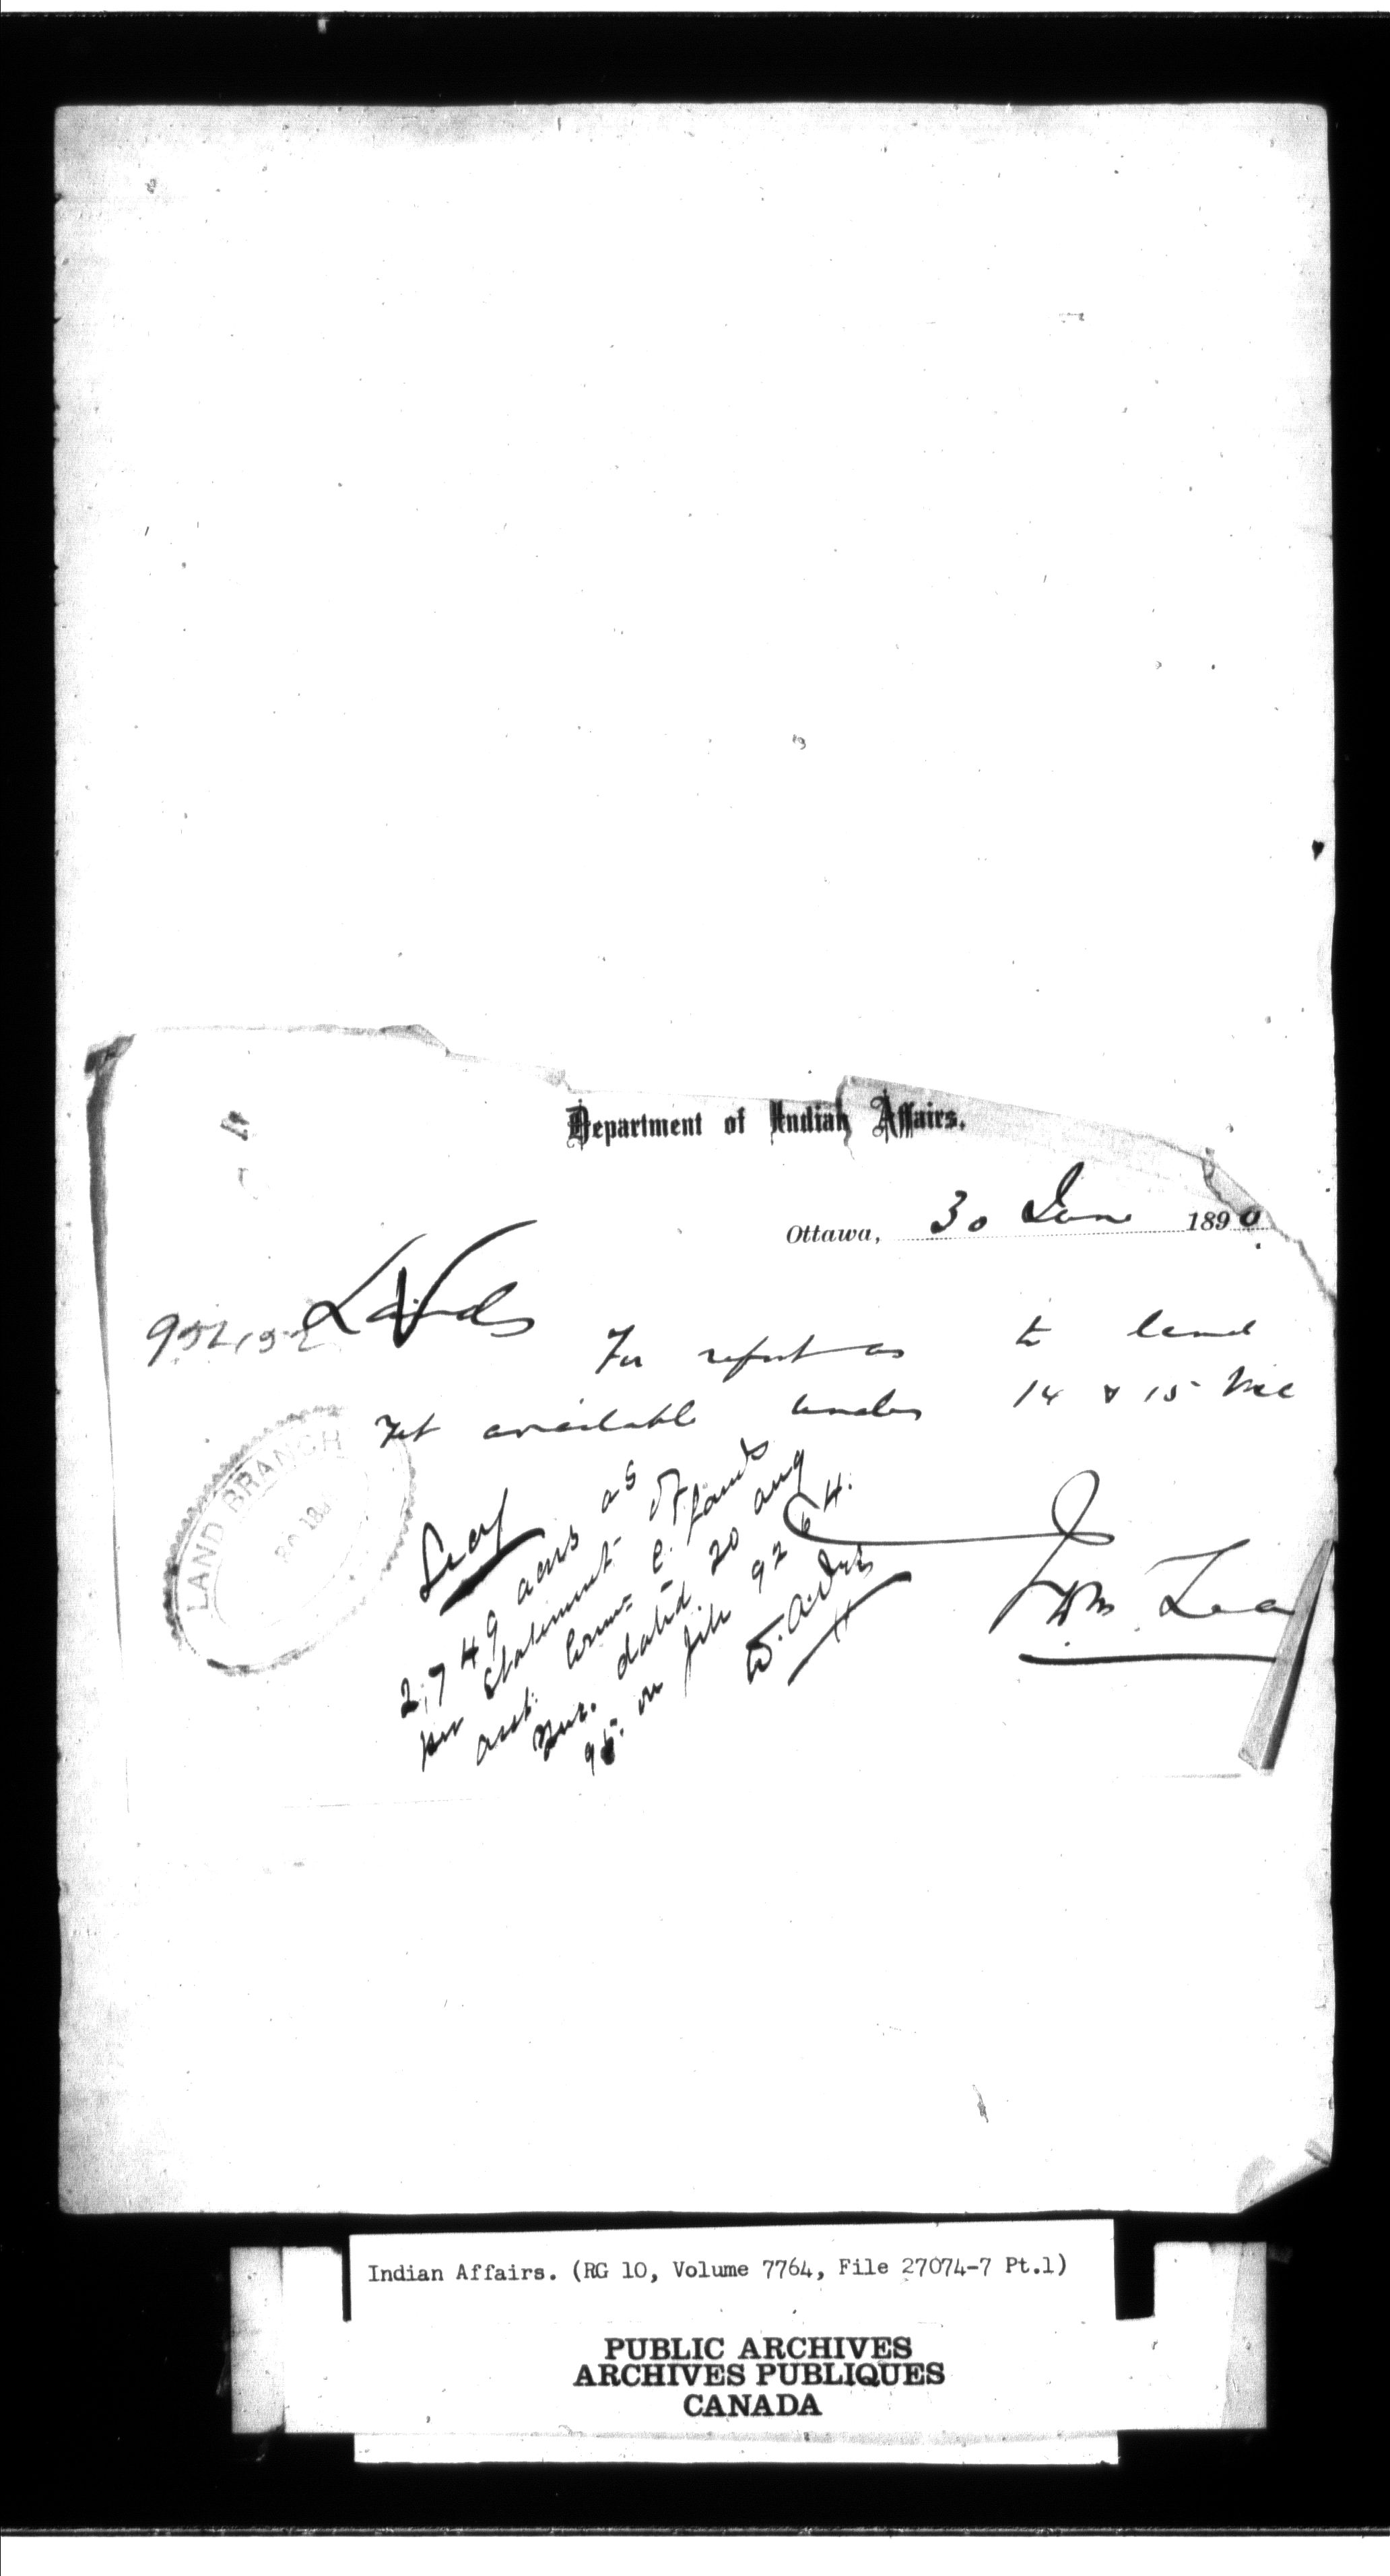 Department of Indian Affairs.
Ottawa, 30 June 1890
Lands
For report as to land
yet available under 14 & 15 Vic
LAND BRANCH
Secy
2,749 acres as
per statement of
asst. Com. C. Lands
Que. dated 20 aug
95. on file 9264.
W. A. Orr
Indian Affairs. (RG 10, Volume 7764, File 27074-7 Pt.1)
PUBLIC ARCHIVES
ARCHIVES PUBLIQUES
CANADA